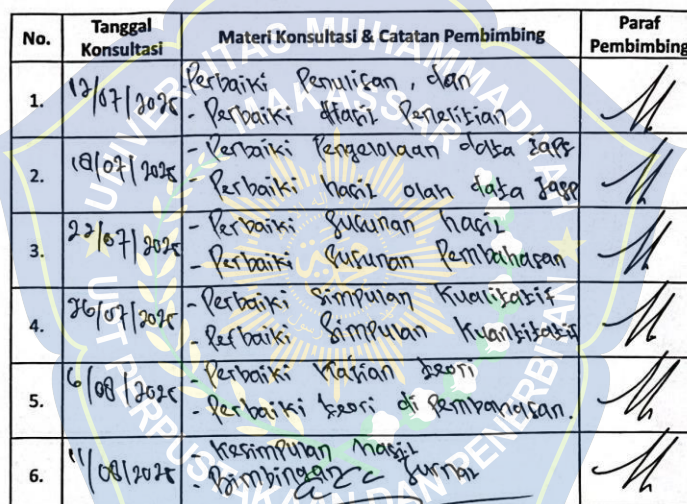 No. Tanggal Konsultasi Materi Konsultasi & Catatan Pembimbing Paraf Pembimbing
1. 12/07/2025 - Perbaiki Penulisan, dan
- Perbaiki Hasil Penelitian
2. 18/07/2025 - Perbaiki Pengelolaan data
- Perbaiki hasil olah data
3. 22/07/2025 - Perbaiki susunan hasil
- Perbaiki susunan Pembahasan
4. 26/07/2025 - Perbaiki Simpulan Kualitatif
- Perbaiki Simpulan Kuantitatif
5. 6/08/2025 - Perbaiki Kajian teori
- Perbaiki teori di Pembahasan.
6. 11/08/2025 - Kesimpulan hasil
- Bimbingan Jurnal
UNIVERSITAS MUHAMMADIYAH
MAKASSAR
UPT PERPUSTAKAAN DAN PENERBITAN